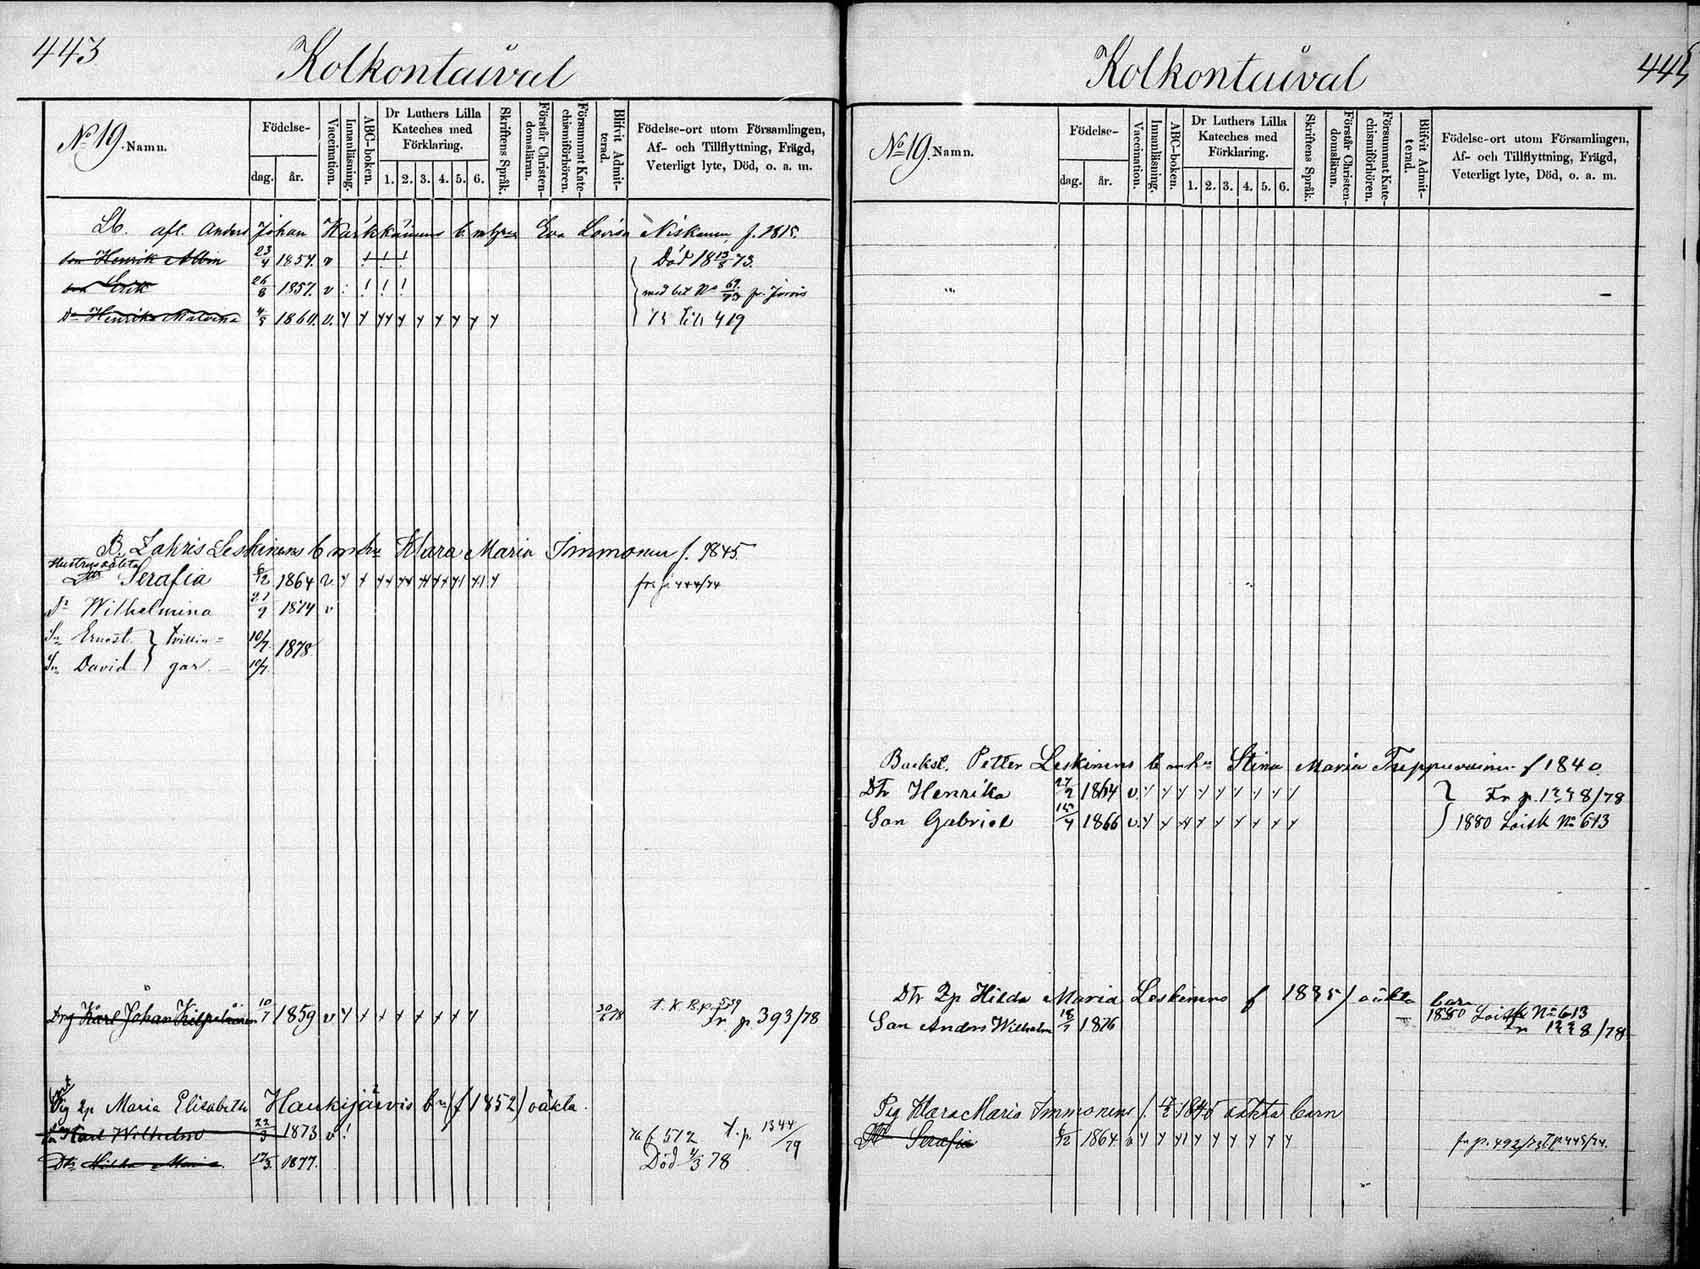 443
Kolkontaival
No 19. Namn.
Födelse-
dag.
år.
Vaccination.
Innanläsning.
ABC-boken.
Dr Luthers Lilla
Kateches med
Förklaring.
1. 2. 3. 4. 5. 6.
Skriftens Språk.
Förstår Christen-
domslänn.
Försummat Kate-
chismiförhören.
Blifvit Admit-
terad.
Födelse-ort utom Församlingen,
Af- och Tillflyttning, Frägd,
Veterligt lyte, Död, o. a. m.
afl. Anders Johan Kärkkäinens b. m Eva Lovisa Niskanen, f. 1815.
son Henrik Albin 23/4 1854. v ! ! ! Död 18 13/8 73.
son Erik 26/6 1857. v : ! ! ! med bet No 69/73
Dr Henrika Malvina 4/5 1860. v. y y y y y y y y y y 419
B. Zakris Leskinens b m hu Klara Maria Immonen f. 1845.
Hustruns oäkta
Dtr Serafia 6/12 1864 v y y y y y y y y y y fr. p. 444/74
Dr Wilhelmina 21/9 1874 v
Sn Ernest } tvillin-
10/7 1878
Sn David } gar.
10/7
Drg Karl Johan Kilpeläinen 10/7 1859 v y y y y y y y y 30/6 78 t. K. B. p. 539
Fr p 393/78
Pig Maria Elisabeth Haukijärvis bn (f 1852) oäkta.
Sn Karl Wilhelm 22/3 1873 v ! 572 t. p. 1344/79
Dtr Hilda Maria 1877. Död 4/3 78
445
Kolkontaival
No 19. Namn.
Födelse-
dag.
år.
Vaccination.
Innanläsning.
ABC-boken.
Dr Luthers Lilla
Kateches med
Förklaring.
1. 2. 3. 4. 5. 6.
Skriftens Språk.
Förstår Christen-
domslänn.
Försummat Kate-
chismiförhören.
Blifvit Admit-
terad.
Födelse-ort utom Församlingen,
Af- och Tillflyttning, Frägd,
Veterligt lyte, Död, o. a. m.
Backst. Petter Leskinens b m hu Stina Maria f 1840.
Dtr Henrika 27/2 1864 v. y y y y y y y y y } Fr p. 1228/78
Son Gabriel 15/4 1866 v. y y y y y y y y y } 1880 Loisk No 613
Dtr Hilda Maria Leskinens f 1835) oäkta barn
Son Anders Wilhelm 18/7 1876 1880 Loisk No 613
Fr 1228/78
Pig Klara Maria Immonens f. 1845 oäkta barn
Dtr Serafia 6/12 1864 v y y y y y y y y y fr p. 492/73 T. p. 443/74.